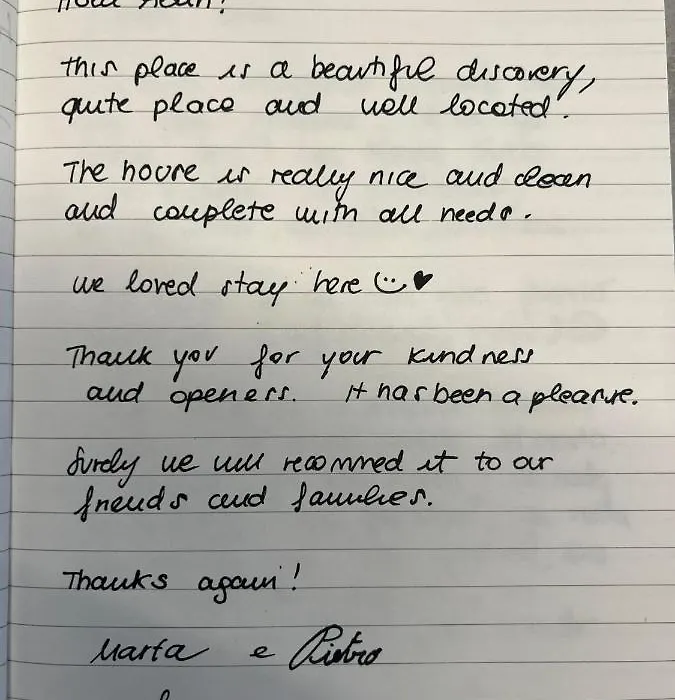 this place is a beautiful discovery,
quite place and well located!
The house is really nice and clean
and complete with all needs.
we loved stay here
Thank you for your kindness
and openess. It has been a pleasure.
Surely we will recommed it to our
friends and families.
Thanks again!
Marta e Pietro